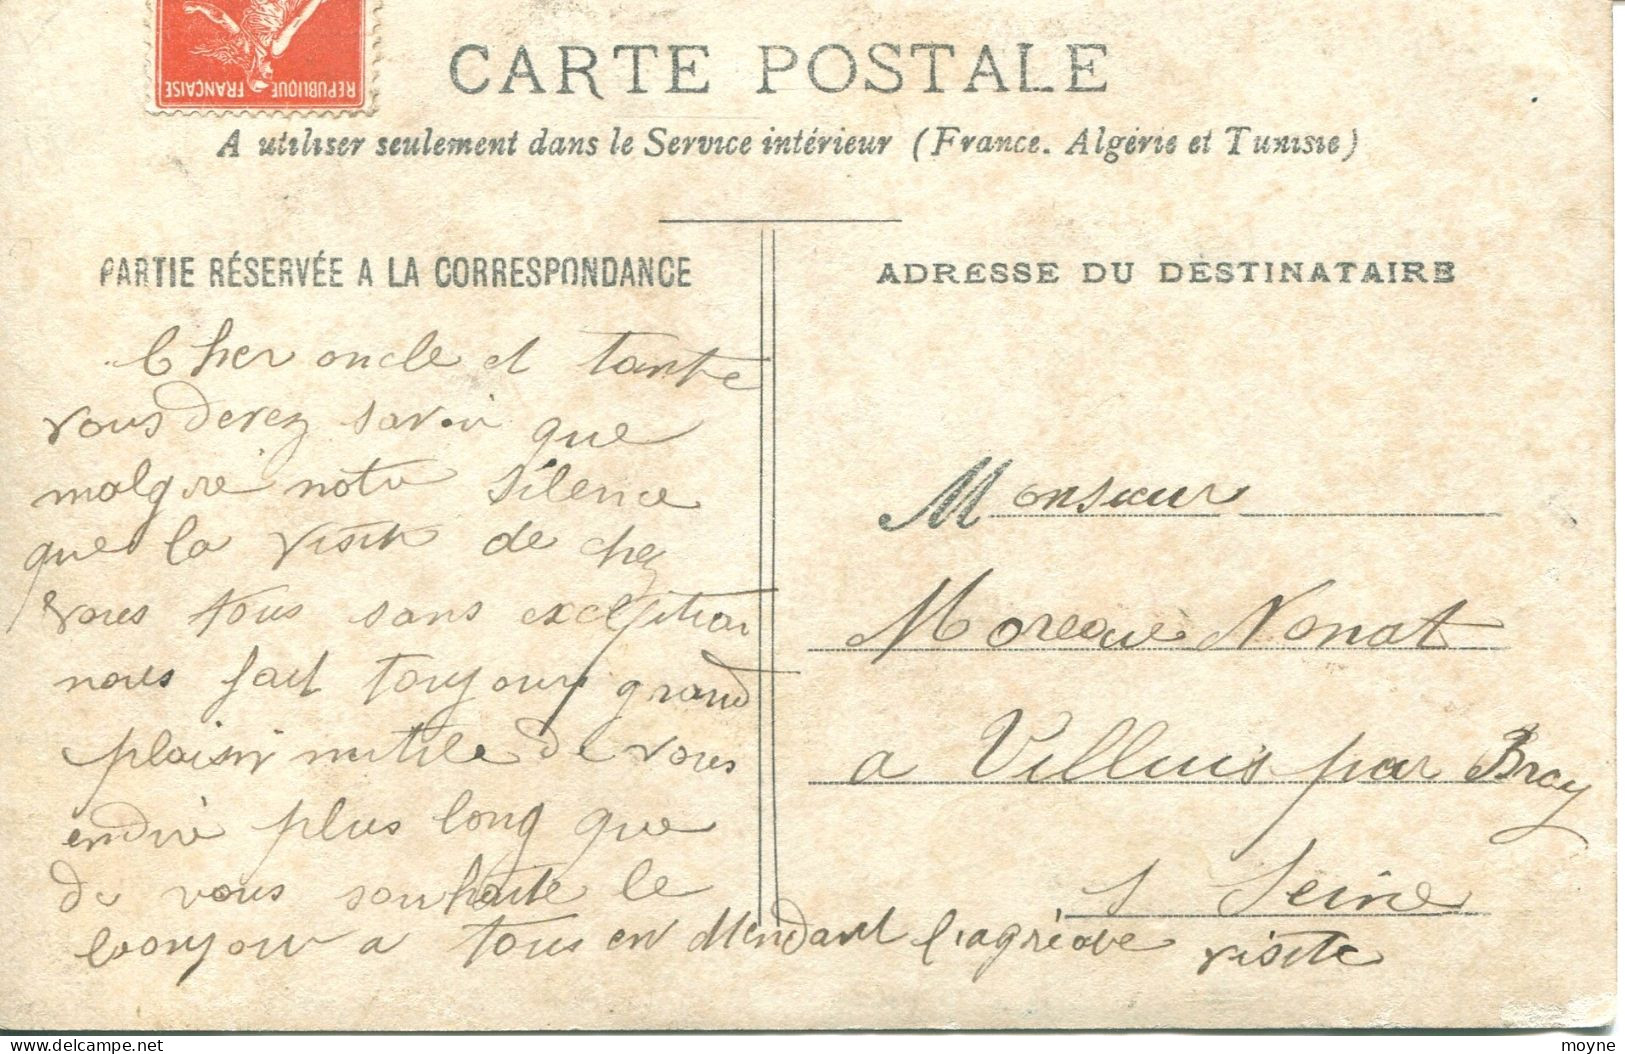 REPUBLIQUE FRANÇAISE
CARTE POSTALE
A utiliser seulement dans le Service intérieur (France. Algérie et Tunisie)
PARTIE RÉSERVÉE A LA CORRESPONDANCE
Cher oncle et tante
vous devez savoir que
malgré notre silence
que la visite de chez
vous tous sans exception
nous fait toujours grand
plaisir inutile de vous
endire plus long que
de vous souhaité le
bonjour a tous en attendant l'agréable visite
ADRESSE DU DESTINATAIRE
Monsieur
Moreau Nonat
a Villuis par Bray
s Seine
moyne